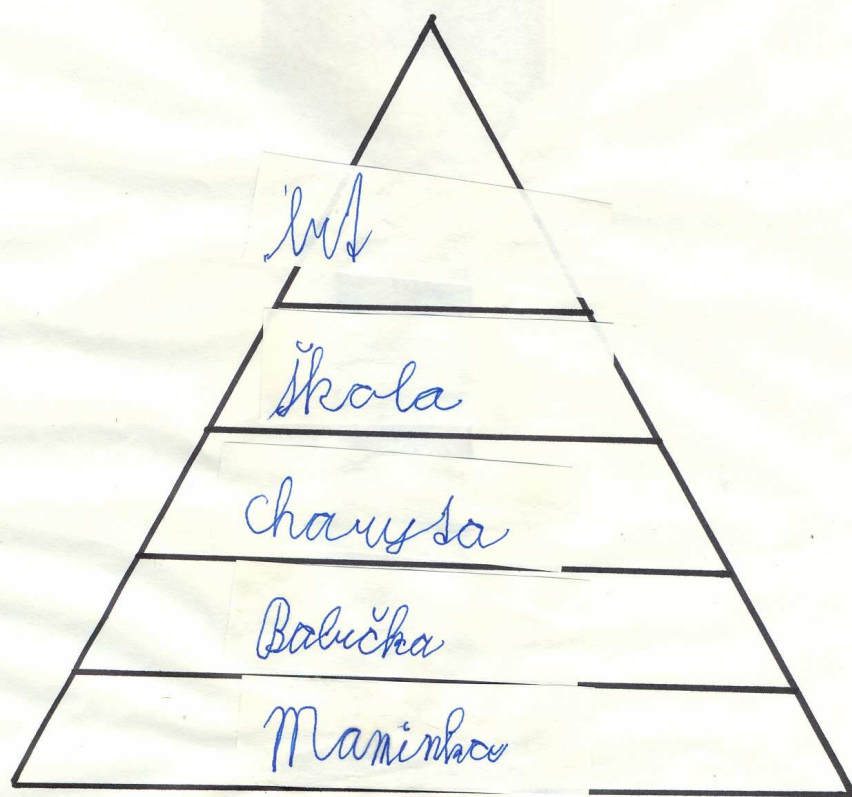 škola
charyta
Babička
Maminka